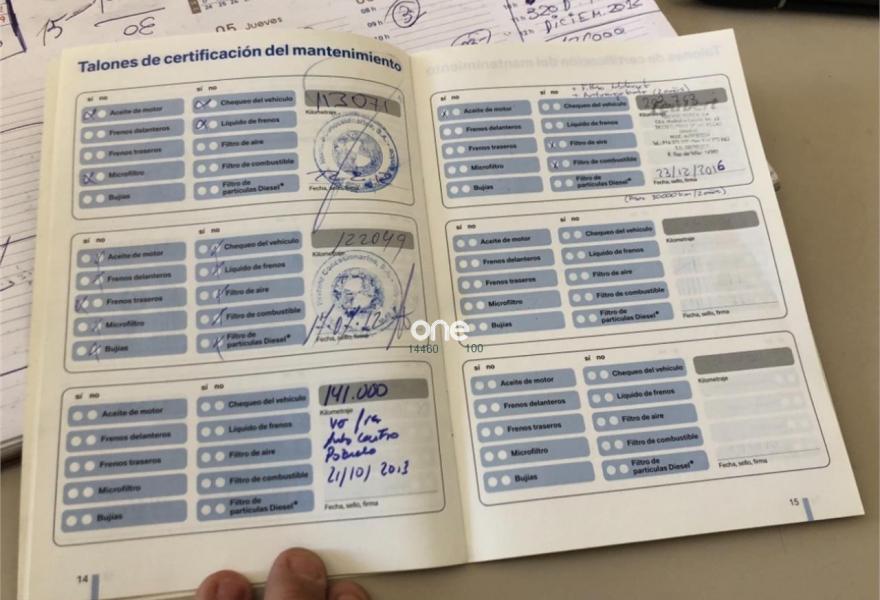 05 Jueves
320D
DICIEM. 2012
Talones de certificación del mantenimiento
sí no
sí no
Aceite de motor
Frenos delanteros
Frenos traseros
Microfiltro
Bujías
Chequeo del vehículo
Líquido de frenos
Filtro de aire
Filtro de combustible
Filtro de
partículas Diesel*
113071
Kilometraje
Fecha, sello, firma
sí no
sí no
Aceite de motor
Frenos delanteros
Frenos traseros
Microfiltro
Bujías
Chequeo del vehículo
Líquido de frenos
Filtro de aire
Filtro de combustible
Filtro de
partículas Diesel*
122049
Kilometraje
Fecha, sello, firma
sí no
sí no
Aceite de motor
Frenos delanteros
Frenos traseros
Microfiltro
Bujías
Chequeo del vehículo
Líquido de frenos
Filtro de aire
Filtro de combustible
Filtro de
partículas Diesel*
141.000
Kilometraje
21/10/2013
Fecha, sello, firma
14
sí no
sí no
Aceite de motor
Frenos delanteros
Frenos traseros
Microfiltro
Bujías
Chequeo del vehículo
Líquido de frenos
Filtro de aire
Filtro de combustible
Filtro de
partículas Diesel*
23/12/2016
Fecha, sello, firma
30000 km/2años)
sí no
sí no
Aceite de motor
Frenos delanteros
Frenos traseros
Microfiltro
Bujías
Chequeo del vehículo
Líquido de frenos
Filtro de aire
Filtro de combustible
Filtro de
partículas Diesel*
Kilometraje
Fecha, sello, firma
sí no
sí no
Aceite de motor
Frenos delanteros
Frenos traseros
Microfiltro
Bujías
Chequeo del vehículo
Líquido de frenos
Filtro de aire
Filtro de combustible
Filtro de
partículas Diesel*
Kilometraje
Fecha, sello, firma
15
one
14460 100